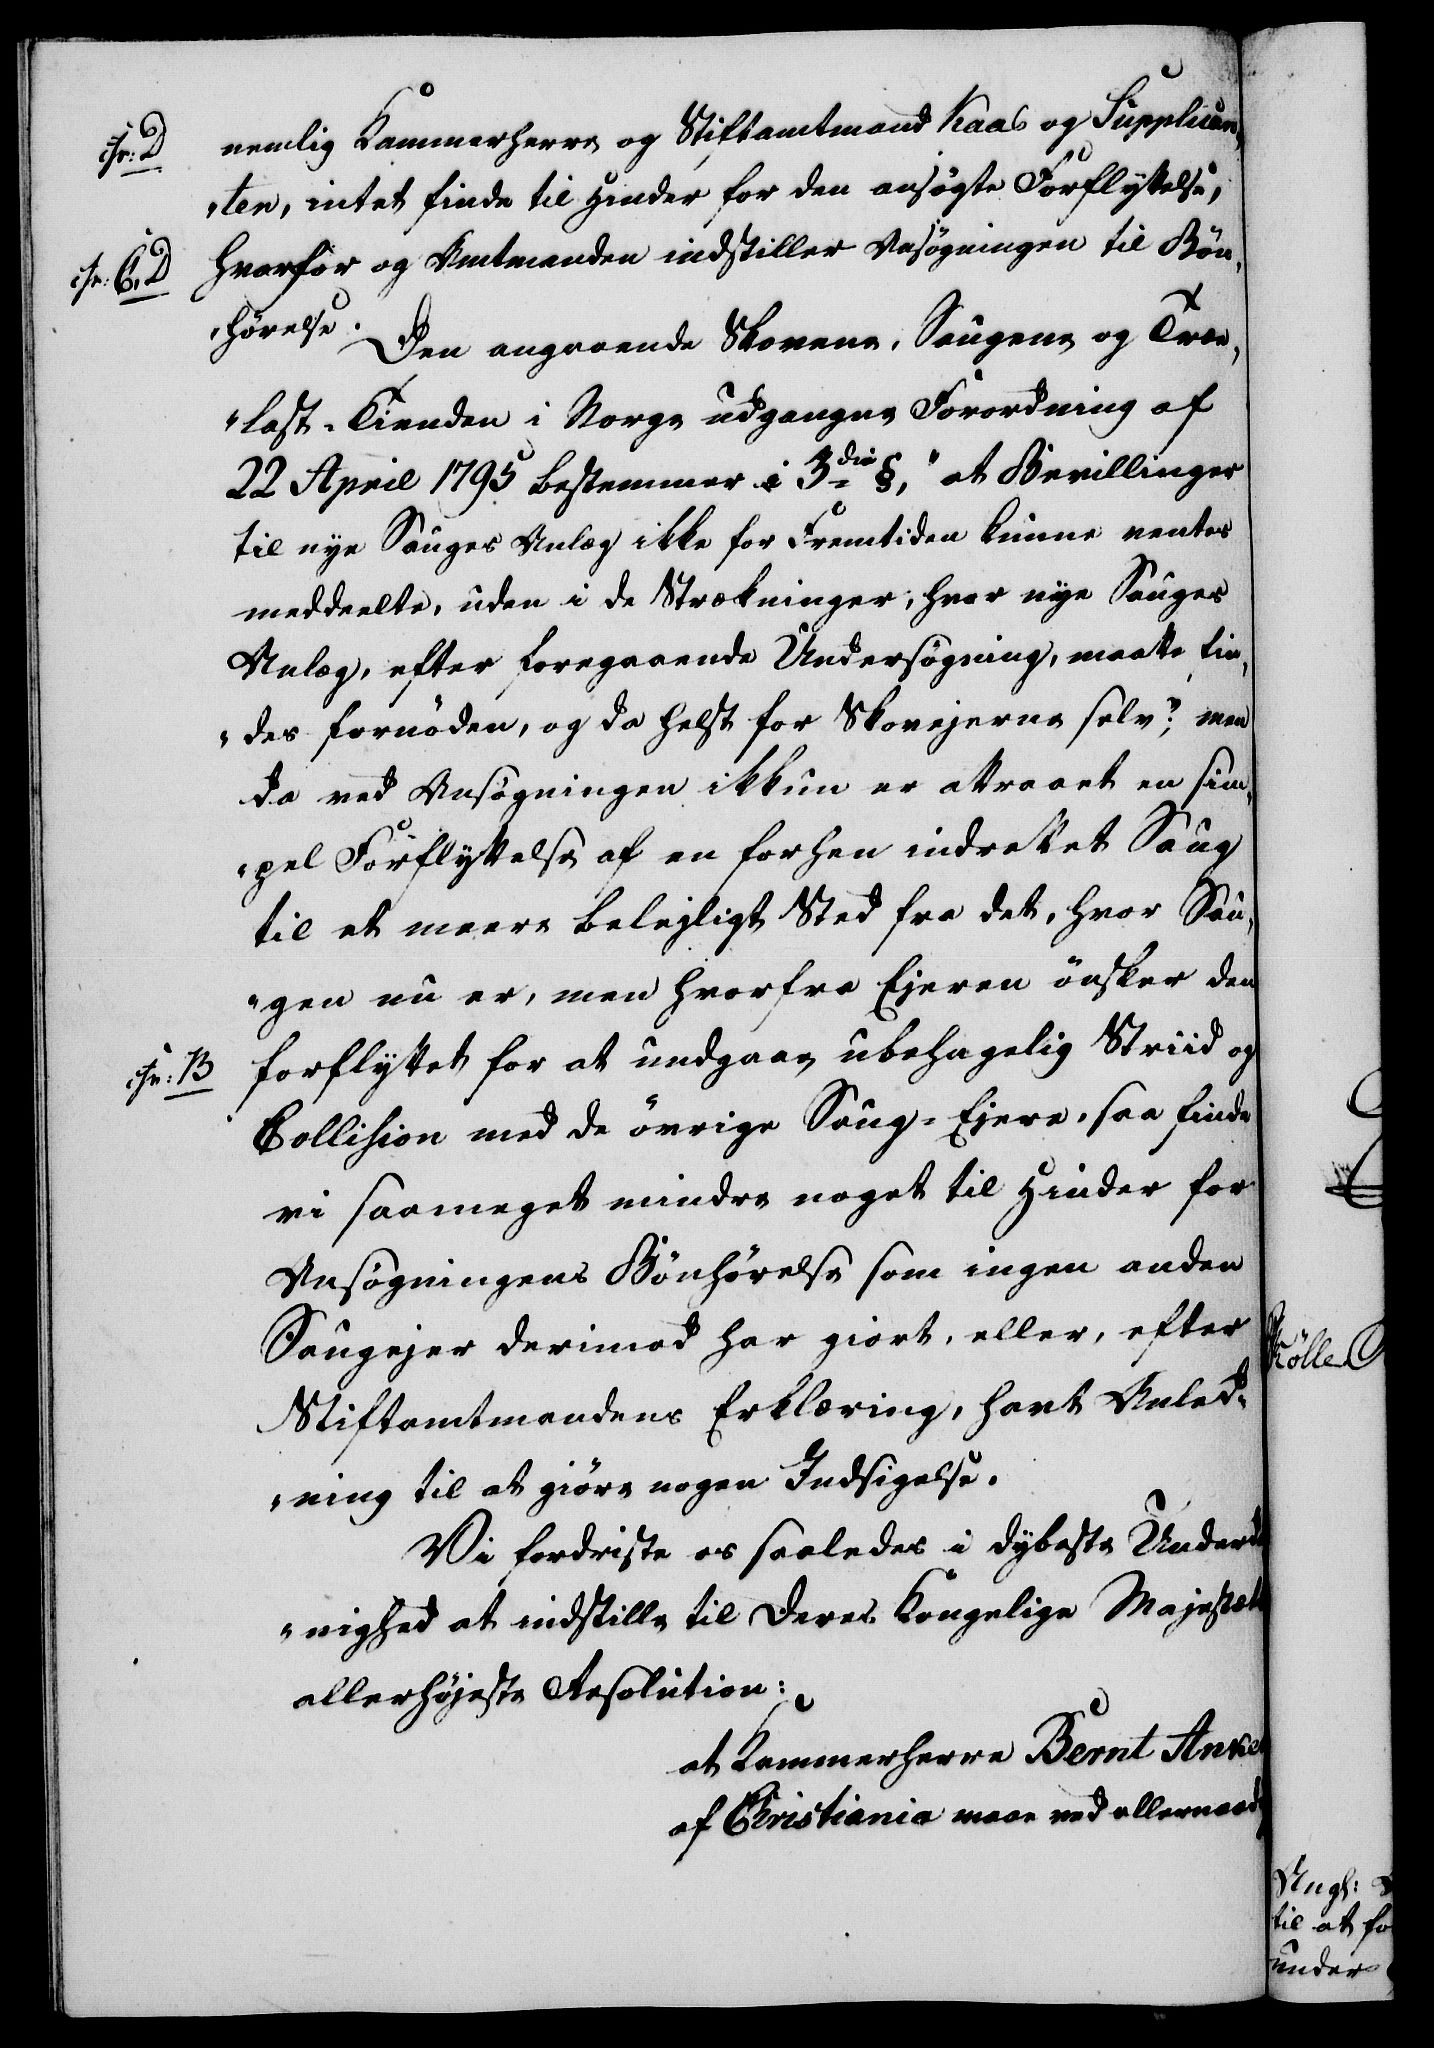 cfr: D
nemlig Kammerherre og Stiftamtmand Kaas og Supplican„
„ten, intet finde til Hinder for den ansøgte Forflyttelse,
cfr: C, D
hvorfor og Amtmanden indstiller Ansøgningen til Bøn„
„hørelse.
Den angaaende Skovene, Saugene og Træ„
„last-Tienden i Norge udgangne Forordning af
22 April 1795 bestemmer i 3die §, "at Bevillinger
til nye Sauges Anlæg ikke for Fremtiden kunne ventes
meddeelte, uden i de Strækninger, hvor nye Sauges
Anlæg, efter foregaaende Undersøgning, maatte fin„
„des fornöden, og da helst for Skovejerne selv"; men
da ved Ansøgningen ikkun er attraaet en sim„
„pel Forflyttelse af en forhen indrettet Saug
til et meere belejligt Sted fra det, hvor Sau„
„gen nu er, men hvorfra Ejeren önsker den
cfr: B
forflyttet for at undgaae ubehagelig Striid og
Collision med de övrige Saug-Ejere, saa finde
vi saameget mindre noget til Hinder for
Ansøgningens Bönhörelse som ingen anden
Saugejer derimod har giort, eller, efter
Stiftamtmandens Erklæring, havt Anled„
„ning til at giöre nogen Indsigelse.
Vi fordriste os saaledes i dybeste Underd
„nighed at indstille til Deres Kongelige Majestæts
allerhøjeste Resolution:
at Kammerherre Bernt Anker
af Christiania maae ved allernaad
Kölle
Angl:
til at fo
under